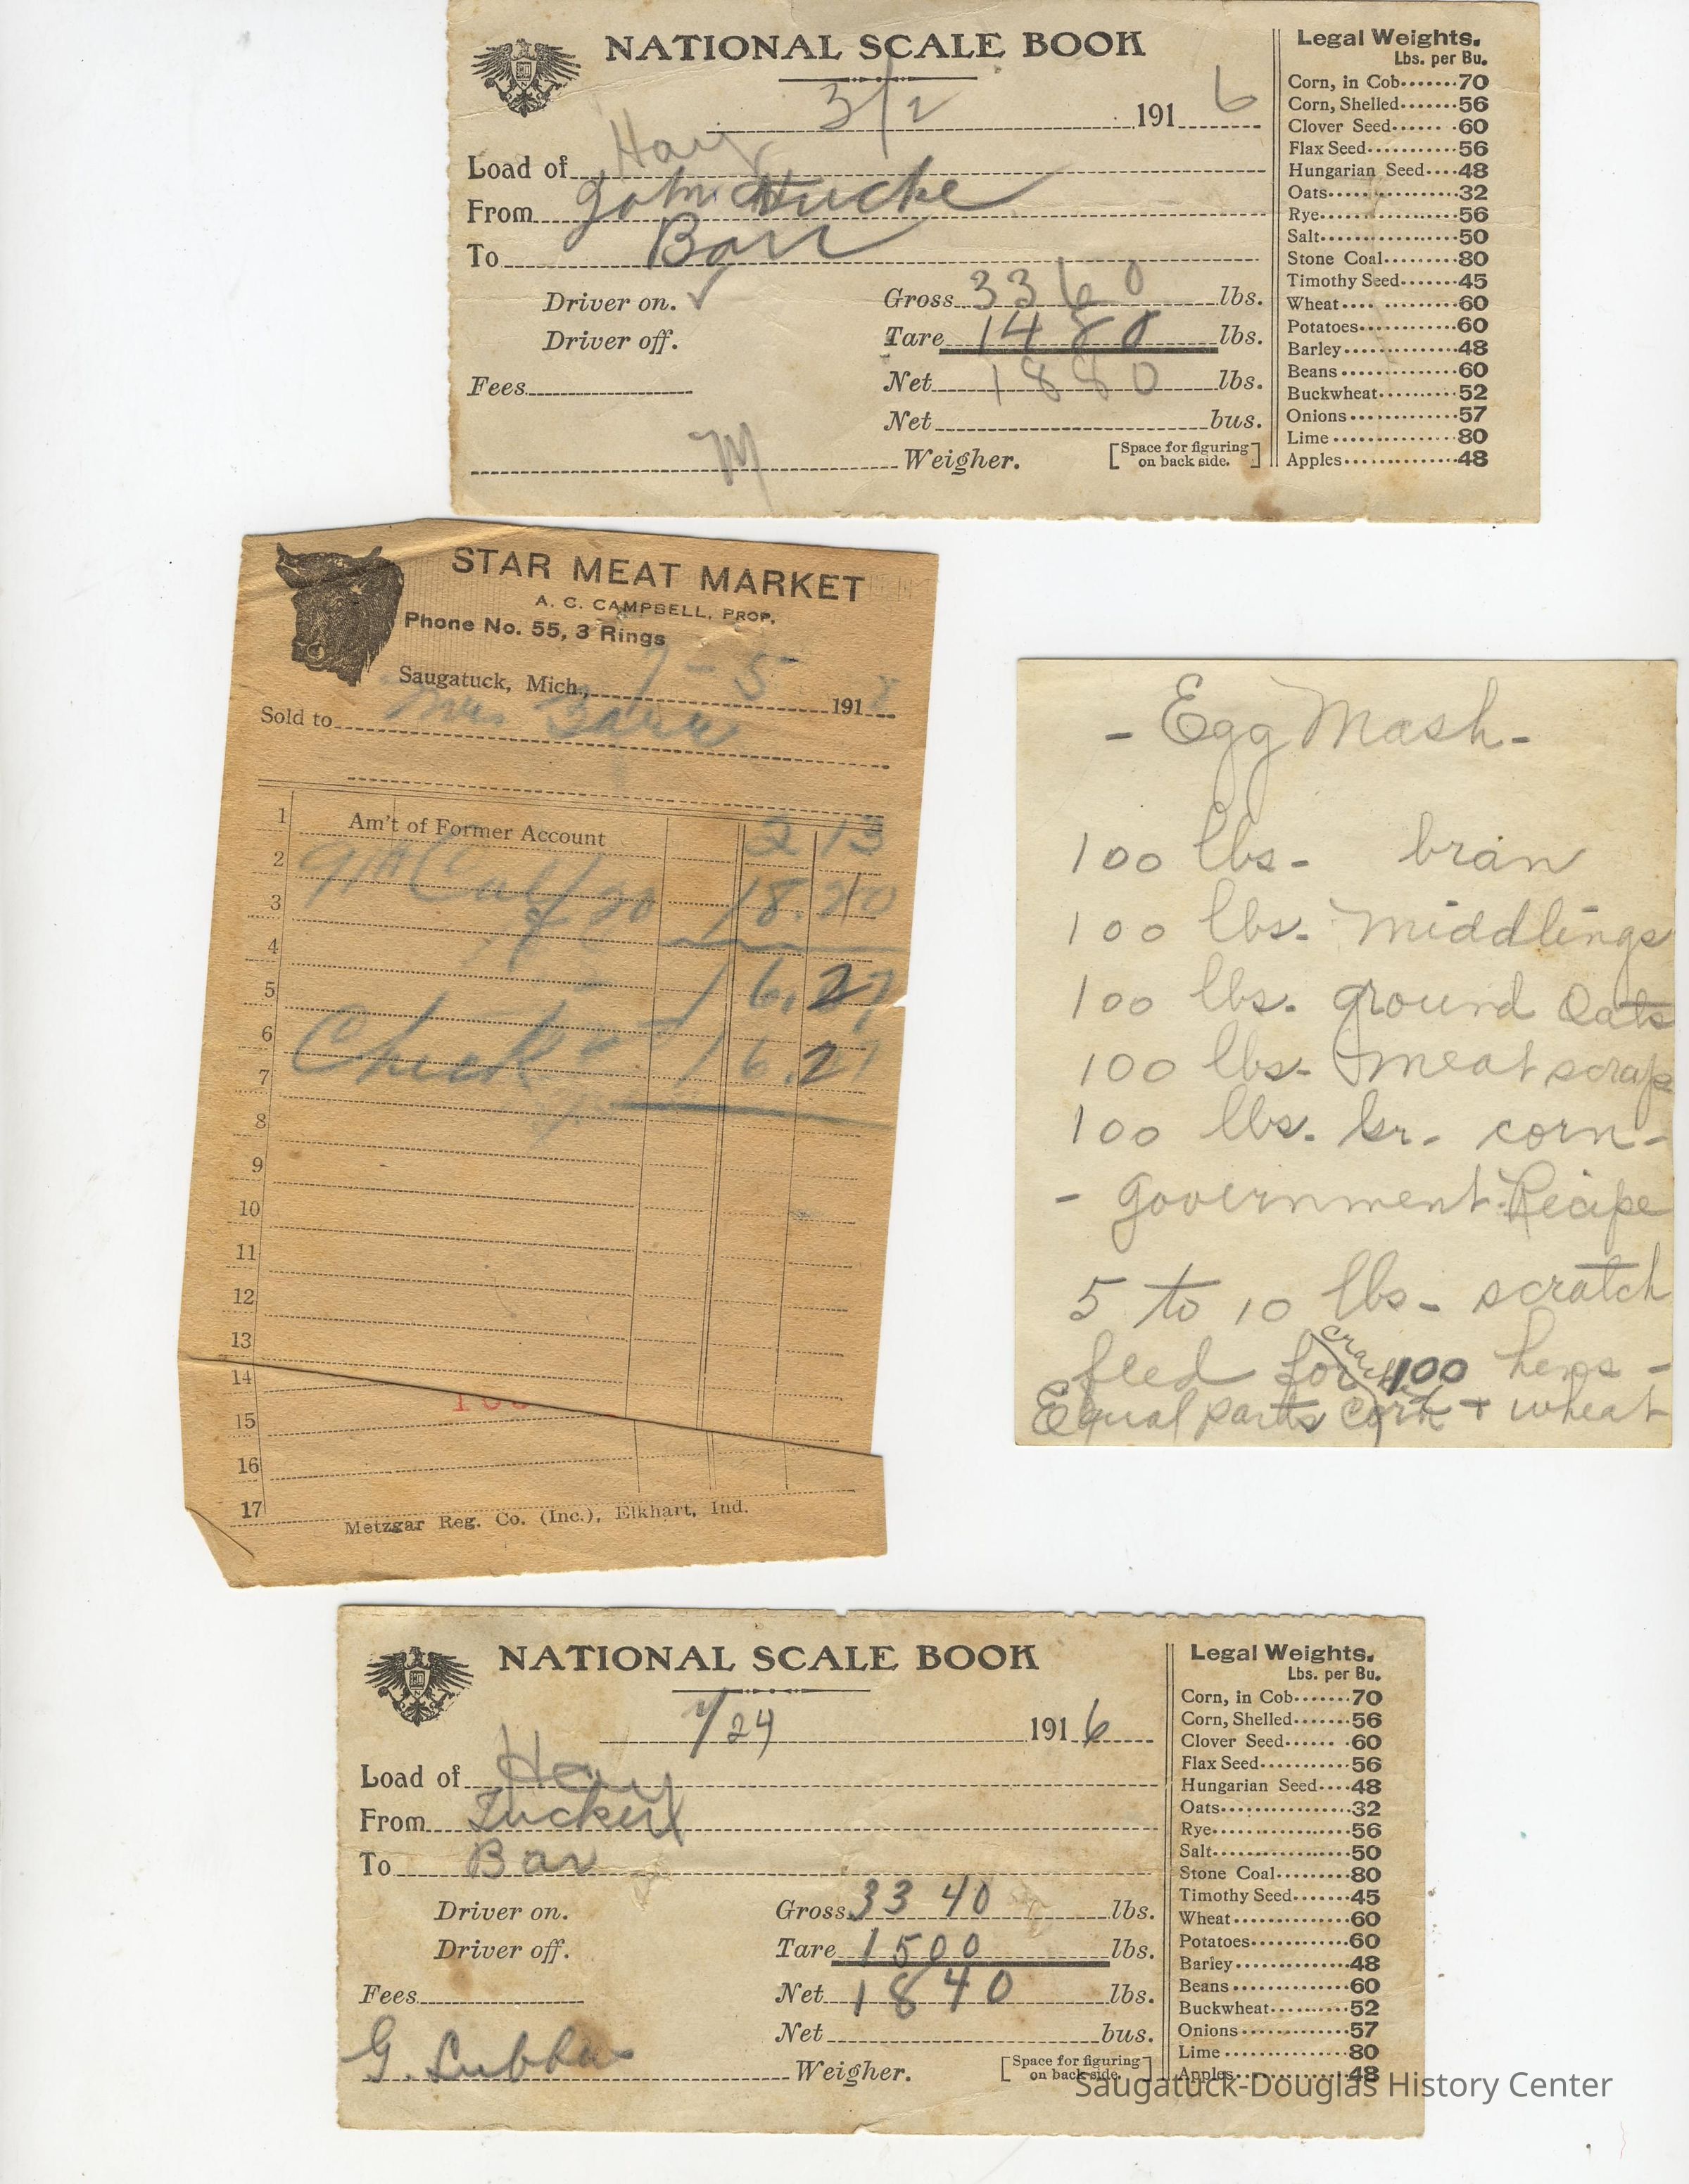 NATIONAL SCALE BOOK
3/2 191 6
Load of Hay
From John
To Barr
Driver on. ✓
Driver off.
Fees
Gross 3360 lbs.
Tare 1480 lbs.
Net 1880 lbs.
Net bus.
M Weigher.
[Space for figuring on back side.]
Legal Weights.
Lbs. per Bu.
Corn, in Cob 70
Corn, Shelled 56
Clover Seed 60
Flax Seed 56
Hungarian Seed 48
Oats 32
Rye 56
Salt 50
Stone Coal 80
Timothy Seed 45
Wheat 60
Potatoes 60
Barley 48
Beans 60
Buckwheat 52
Onions 57
Lime 80
Apples 48
STAR MEAT MARKET
A. C. CAMPBELL, PROP.
Phone No. 55, 3 Rings
Saugatuck, Mich., 7-5 191
Sold to Mrs Barr
1 Am't of Former Account 2 13
2 91# Calf 20 18.20
3
4
5 16.27
6 Check 16.27
7
8
9
10
11
12
13
14
15
16
17
Metzgar Reg. Co. (Inc.), Elkhart, Ind.
- Egg Mash -
100 lbs - bran
100 lbs. middlings
100 lbs. ground Oats
100 lbs - meat scraps
100 lbs. Gr. corn -
- Government Recipe
5 to 10 lbs - scratch
feed for 100 hens -
cracked
Equal parts corn + wheat
NATIONAL SCALE BOOK
7/24 191 6
Load of Hay
From
To Bar
Driver on.
Driver off.
Fees
Gross 3340 lbs.
Tare 1500 lbs.
Net 1840 lbs.
Net bus.
G. Weigher.
[Space for figuring on back side.]
Legal Weights.
Lbs. per Bu.
Corn, in Cob 70
Corn, Shelled 56
Clover Seed 60
Flax Seed 56
Hungarian Seed 48
Oats 32
Rye 56
Salt 50
Stone Coal 80
Timothy Seed 45
Wheat 60
Potatoes 60
Barley 48
Beans 60
Buckwheat 52
Onions 57
Lime 80
Apples 48
Saugatuck-Douglas History Center